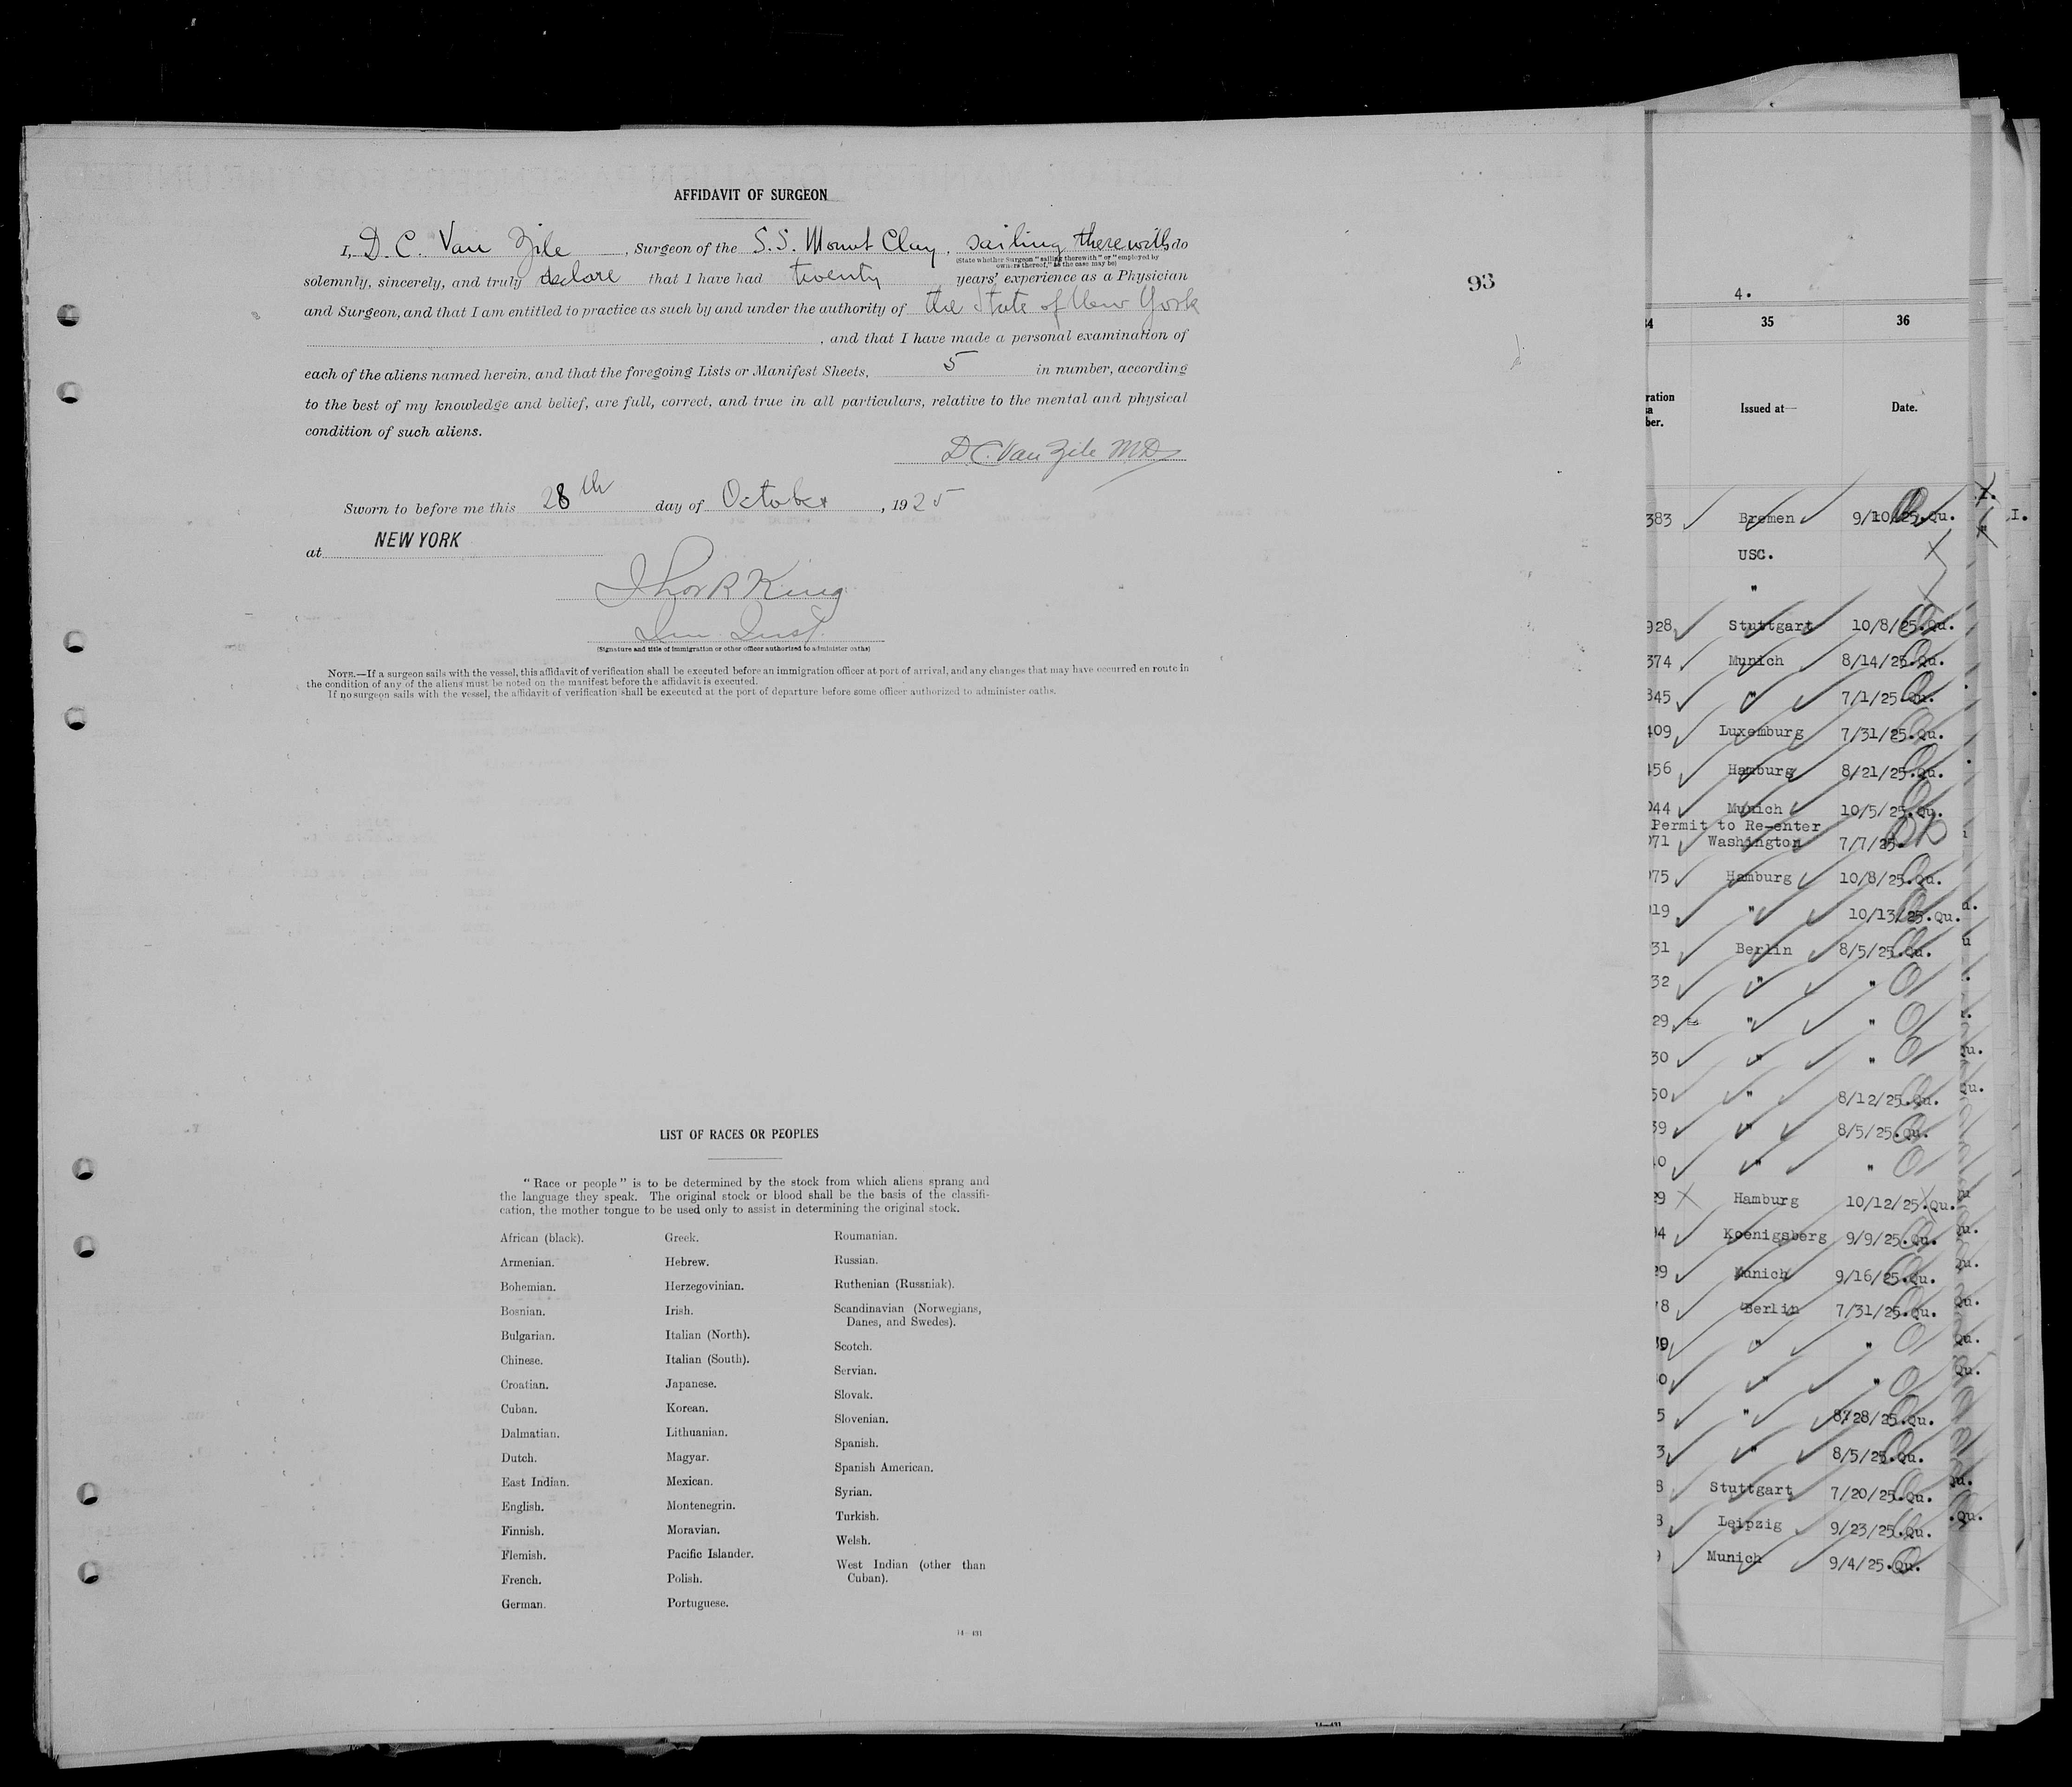 AFFIDAVIT OF SURGEON
I, D. C. Van Zile, Surgeon of the S.S. Mount Clay, sailing therewith do
(State whether Surgeon "sailing therewith" or "employed by
owners thereof," as the case may be)
solemnly, sincerely, and truly declare that I have had twenty years' experience as a Physician
and Surgeon, and that I am entitled to practice as such by and under the authority of the State of New York
, and that I have made a personal examination of
each of the aliens named herein, and that the foregoing Lists or Manifest Sheets, 5 in number, according
to the best of my knowledge and belief, are full, correct, and true in all particulars, relative to the mental and physical
condition of such aliens.
D. C. Van Zile M.D.
Sworn to before me this 28th day of October, 1925
at NEW YORK
King
(Signature and title of immigration or other officer authorized to administer oaths)
NOTE.—If a surgeon sails with the vessel, this affidavit of verification shall be executed before an immigration officer at port of arrival, and any changes that may have occurred en route in
the condition of any of the aliens must be noted on the manifest before the affidavit is executed.
If no surgeon sails with the vessel, the affidavit of verification shall be executed at the port of departure before some officer authorized to administer oaths.
93
LIST OF RACES OR PEOPLES
"Race or people" is to be determined by the stock from which aliens sprang and
the language they speak. The original stock or blood shall be the basis of the classifi-
cation, the mother tongue to be used only to assist in determining the original stock.
African (black).
Armenian.
Bohemian.
Bosnian.
Bulgarian.
Chinese.
Croatian.
Cuban.
Dalmatian.
Dutch.
East Indian.
English.
Finnish.
Flemish.
French.
German.
Greek.
Hebrew.
Herzegovinian.
Irish.
Italian (North).
Italian (South).
Japanese.
Korean.
Lithuanian.
Magyar.
Mexican.
Montenegrin.
Moravian.
Pacific Islander.
Polish.
Portuguese.
Roumanian.
Russian.
Ruthenian (Russniak).
Scandinavian (Norwegians,
Danes, and Swedes).
Scotch.
Servian.
Slovak.
Slovenian.
Spanish.
Spanish American.
Syrian.
Turkish.
Welsh.
West Indian (other than
Cuban).
14—431
4.
34 35 36
Issued at— Date.
383 Bremen 9/10/25.Qu.
USC.
"
928 Stuttgart 10/8/25.Qu.
374 Munich 8/14/25.Qu.
345 " 7/1/25.Qu.
409 Luxemburg 7/31/25.Qu.
456 Hamburg 8/21/25.Qu.
044 Munich 10/5/25.Qu.
Permit to Re-enter
071 Washington 7/7/25.
75 Hamburg 10/8/25.Qu.
19 " 10/13/25.Qu.
31 Berlin 8/5/25.Qu.
32 " "
29 " "
30 " "
50 " 8/12/25.Qu.
39 " 8/5/25.Qu.
0 " "
29 Hamburg 10/12/25.Qu.
04 Koenigsberg 9/9/25.Qu.
29 Munich 9/16/25.Qu.
78 Berlin 7/31/25.Qu.
39 " "
0 " "
5 " 8/28/25.Qu.
3 " 8/5/25.Qu.
8 Stuttgart 7/20/25.Qu.
3 Leipzig 9/23/25.Qu.
9 Munich 9/4/25.Qu.
14—431